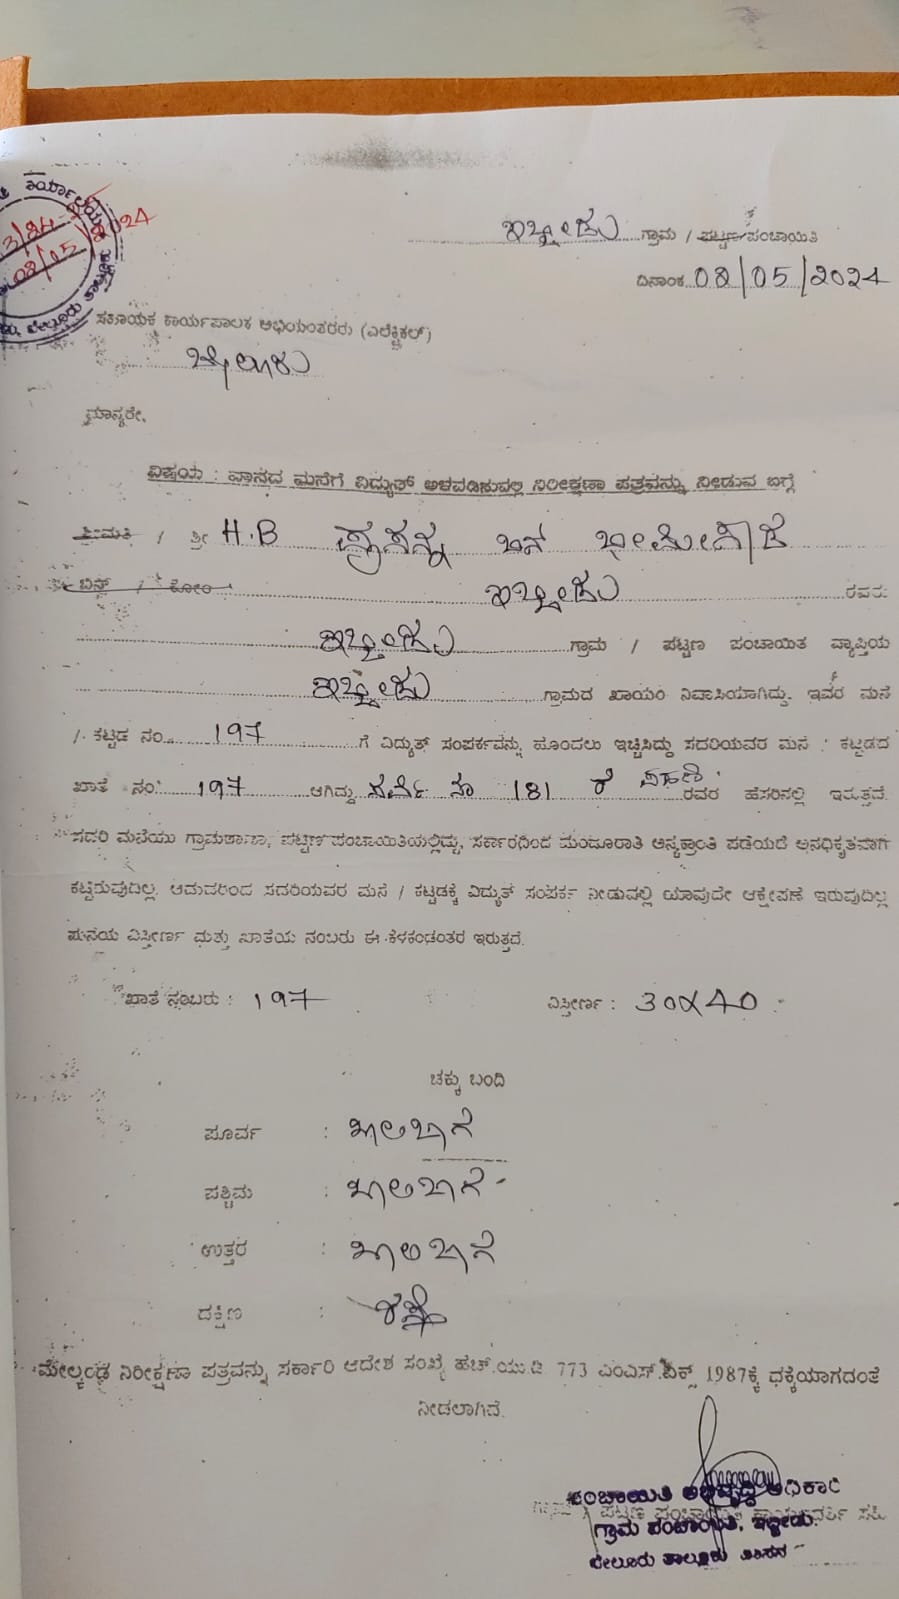 ಇಬ್ಬೀಡು ಗ್ರಾಮ / ಪಟ್ಟಣ ಪಂಚಾಯಿತಿ
ದಿನಾಂಕ 08/05/2024
ಸಹಾಯಕ ಕಾರ್ಯಪಾಲಕ ಅಭಿಯಂತರರು (ಎಲೆಕ್ಟ್ರಿಕಲ್)
ಬೇಲೂರು
ಮಾನ್ಯರೇ,
ವಿಷಯ : ವಾಸದ ಮನೆಗೆ ವಿದ್ಯುತ್ ಅಳವಡಿಸುವಲ್ಲಿ ನಿರೀಕ್ಷಣಾ ಪತ್ರವನ್ನು ನೀಡುವ ಬಗ್ಗೆ
ಶ್ರೀಮತಿ / ಶ್ರೀ H.B ಪ್ರಸನ್ನ ಬಿನ್
ಬಿನ್ / ಕೋಂ ಇಬ್ಬೀಡು ರವರು
ಇಬ್ಬೀಡು ಗ್ರಾಮ / ಪಟ್ಟಣ ಪಂಚಾಯಿತ ವ್ಯಾಪ್ತಿಯ
ಇಬ್ಬೀಡು ಗ್ರಾಮದ ಖಾಯಂ ನಿವಾಸಿಯಾಗಿದ್ದು, ಇವರ ಮನೆ
/ ಕಟ್ಟಡ ನಂ. 197 ಗೆ ವಿದ್ಯುತ್ ಸಂಪರ್ಕವನ್ನು ಹೊಂದಲು ಇಚ್ಛಿಸಿದ್ದು ಸದರಿಯವರ ಮನೆ / ಕಟ್ಟಡದ
ಖಾತೆ ನಂ. 197 ಆಗಿದ್ದು ಸರ್ವೆ ನಂ 181 ರ ಪಹಣಿ ರವರ ಹೆಸರಿನಲ್ಲಿ ಇರುತ್ತದೆ.
ಸದರಿ ಮನೆಯು ಗ್ರಾಮಠಾಣಾ, ಪಟ್ಟಣ ಪಂಚಾಯಿತಿಯಲ್ಲಿದ್ದು, ಸರ್ಕಾರದಿಂದ ಮಂಜೂರಾತಿ ಅನ್ಯಕ್ರಾಂತಿ ಪಡೆಯದೆ ಅನಧಿಕೃತವಾಗಿ
ಕಟ್ಟಿರುವುದಿಲ್ಲ. ಆದುದರಿಂದ ಸದರಿಯವರ ಮನೆ / ಕಟ್ಟಡಕ್ಕೆ ವಿದ್ಯುತ್ ಸಂಪರ್ಕ ನೀಡುವಲ್ಲಿ ಯಾವುದೇ ಆಕ್ಷೇಪಣೆ ಇರುವುದಿಲ್ಲ
ಮನೆಯ ವಿಸ್ತೀರ್ಣ ಮತ್ತು ಖಾತೆಯ ನಂಬರು ಈ ಕೆಳಕಂಡಂತರ ಇರುತ್ತದೆ.
ಖಾತೆ ನಂಬರು : 197 ವಿಸ್ತೀರ್ಣ : 30X40
ಚಕ್ಕು ಬಂದಿ
ಪೂರ್ವ : ಖಾಲಿಜಾಗ
ಪಶ್ಚಿಮ : ಖಾಲಿಜಾಗ
ಉತ್ತರ : ಖಾಲಿಜಾಗ
ದಕ್ಷಿಣ : ರಸ್ತೆ
ಮೇಲ್ಕಂಡ ನಿರೀಕ್ಷಣಾ ಪತ್ರವನ್ನು ಸರ್ಕಾರಿ ಆದೇಶ ಸಂಖ್ಯೆ ಹೆಚ್.ಯು.ಡಿ. 773 ಎಂಎಸ್.ಎಕ್ಸ್ 1987ಕ್ಕೆ ಧಕ್ಕೆಯಾಗದಂತೆ
ನೀಡಲಾಗಿದೆ.
ಪಂಚಾಯಿತಿ ಅಭಿವೃದ್ಧಿ ಅಧಿಕಾರಿ
ಗ್ರಾಮ ಪಂಚಾಯಿತಿ, ಇಬ್ಬೀಡು.
ಬೇಲೂರು ತಾಲ್ಲೂಕು ಹಾಸನ